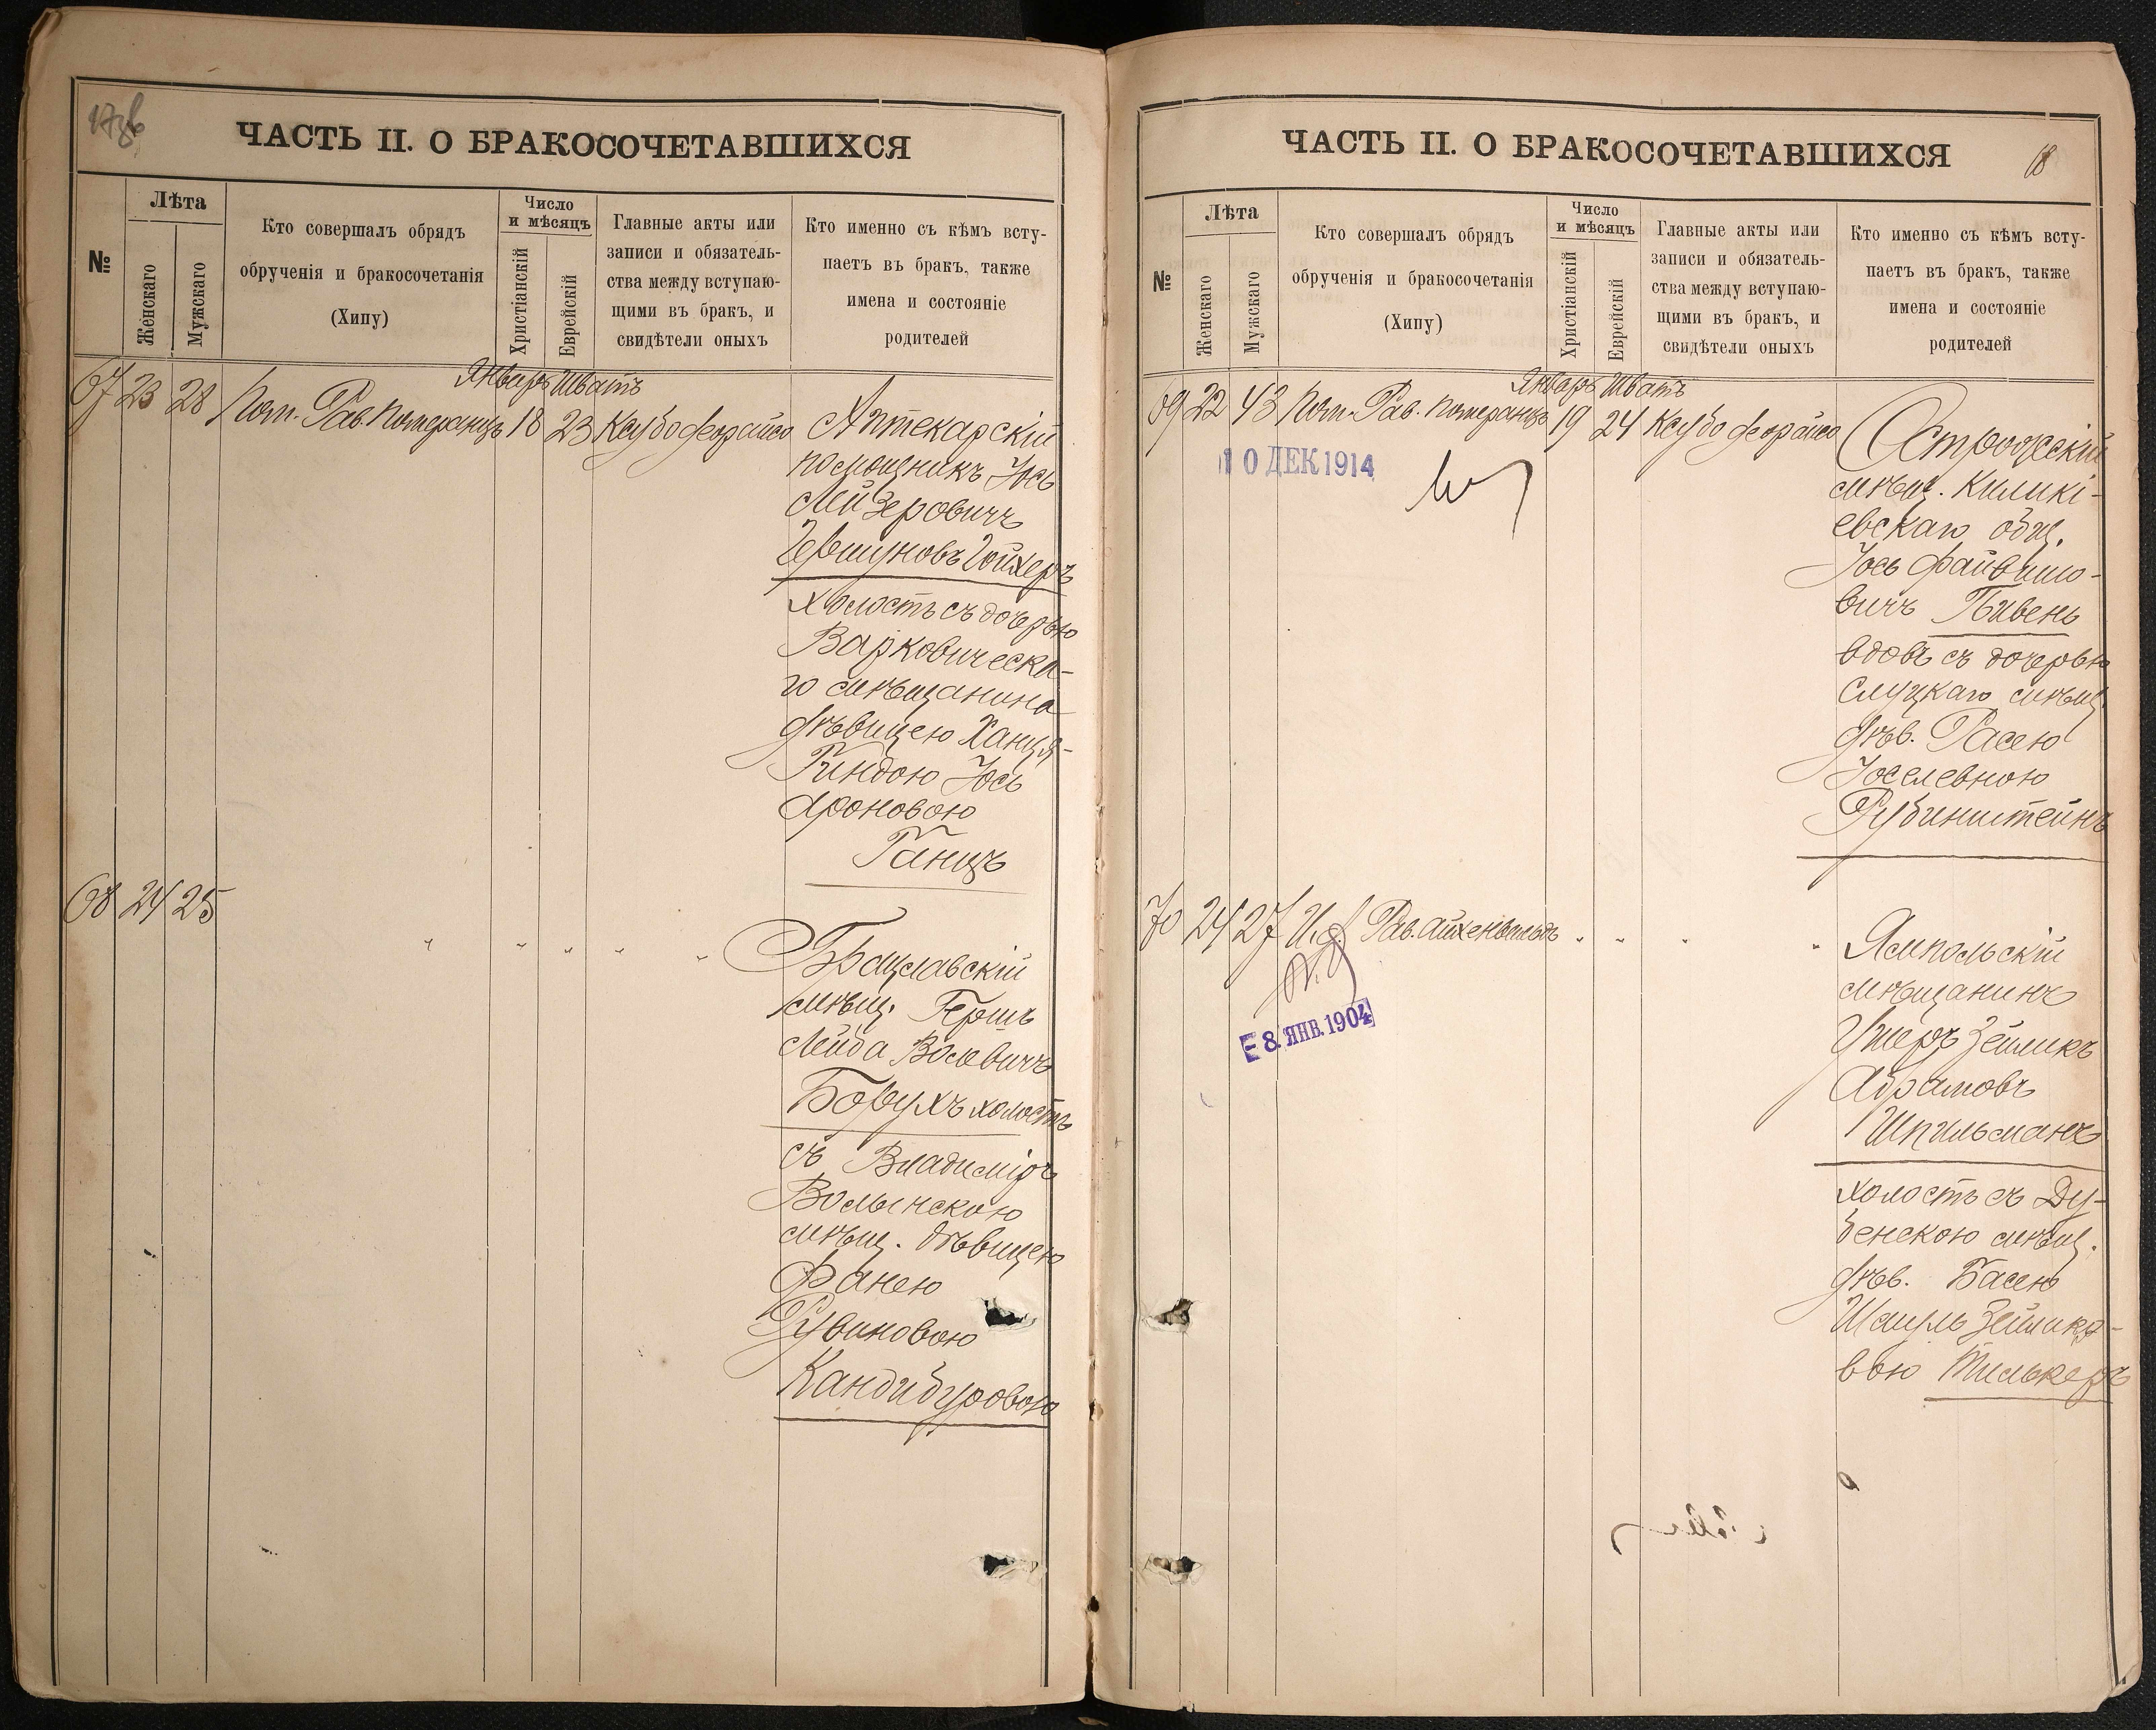 ЧАСТЬ II. О БРАКОСОЧЕТАВШИХСЯ
№
Лѣта
Женскаго
Мужскаго
Кто совершалъ обрядъ
обрученія и бракосочетанія
(Хипу)
Число
и мѣсяцъ
Христіанскій
Еврейскій
Главные акты или
записи и обязатель-
ства между вступаю-
щими въ бракъ, и
свидѣтели оныхъ
Кто именно съ кѣмъ всту-
паетъ въ бракъ, также
имена и состояніе
родителей
Январь Шватъ
67 23 28 Пом. Рав. Померанцъ 18 23 Ксубо деорайсо
Аптекарскій
помощникъ Іось
Лейзеровичъ
Гершуновъ Гойхеръ
холостъ съ дочерью
Варковическа-
го мѣщанина
дѣвицею Ханця-
Гиндою Іось
Ароновою
Ганцъ
68 24 25 " " " " "
Брацлавскій
мѣщ. Гершъ
Лейба Волевичъ
Борухъ холостъ
съ Владиміръ
Волынскою
мѣщ. дѣвицею
Фанею
Рувиновою
Кандибуровою
ЧАСТЬ II. О БРАКОСОЧЕТАВШИХСЯ
18
№
Лѣта
Женскаго
Мужскаго
Кто совершалъ обрядъ
обрученія и бракосочетанія
(Хипу)
Число
и мѣсяцъ
Христіанскій
Еврейскій
Главные акты или
записи и обязатель-
ства между вступаю-
щими въ бракъ, и
свидѣтели оныхъ
Кто именно съ кѣмъ всту-
паетъ въ бракъ, также
имена и состояніе
родителей
Январь Шватъ
69 22 43 Пом. Рав. Померанцъ 19 24 Ксубо деорайсо
10 ДЕК 1914
Острожскій
мѣщ. Киликі-
евскаго общ.
Іось Файвишо-
вичъ Пивень
вдовъ съ дочерью
Слуцкаго мѣщ.
дѣв. Расею
Іоселевною
Рубинштейнъ
70 24 27 И. д. Рав. Айхенвальдъ " " " "
8. ЯНВ. 1904
Ямпольскій
мѣщанинъ
Ушеръ Зейликъ
Абрамовъ
Шпильманъ
холостъ съ Ду-
бенскою мѣщ.
дѣв. Басею
Шаулъ Зейлико-
вою Тилькеръ